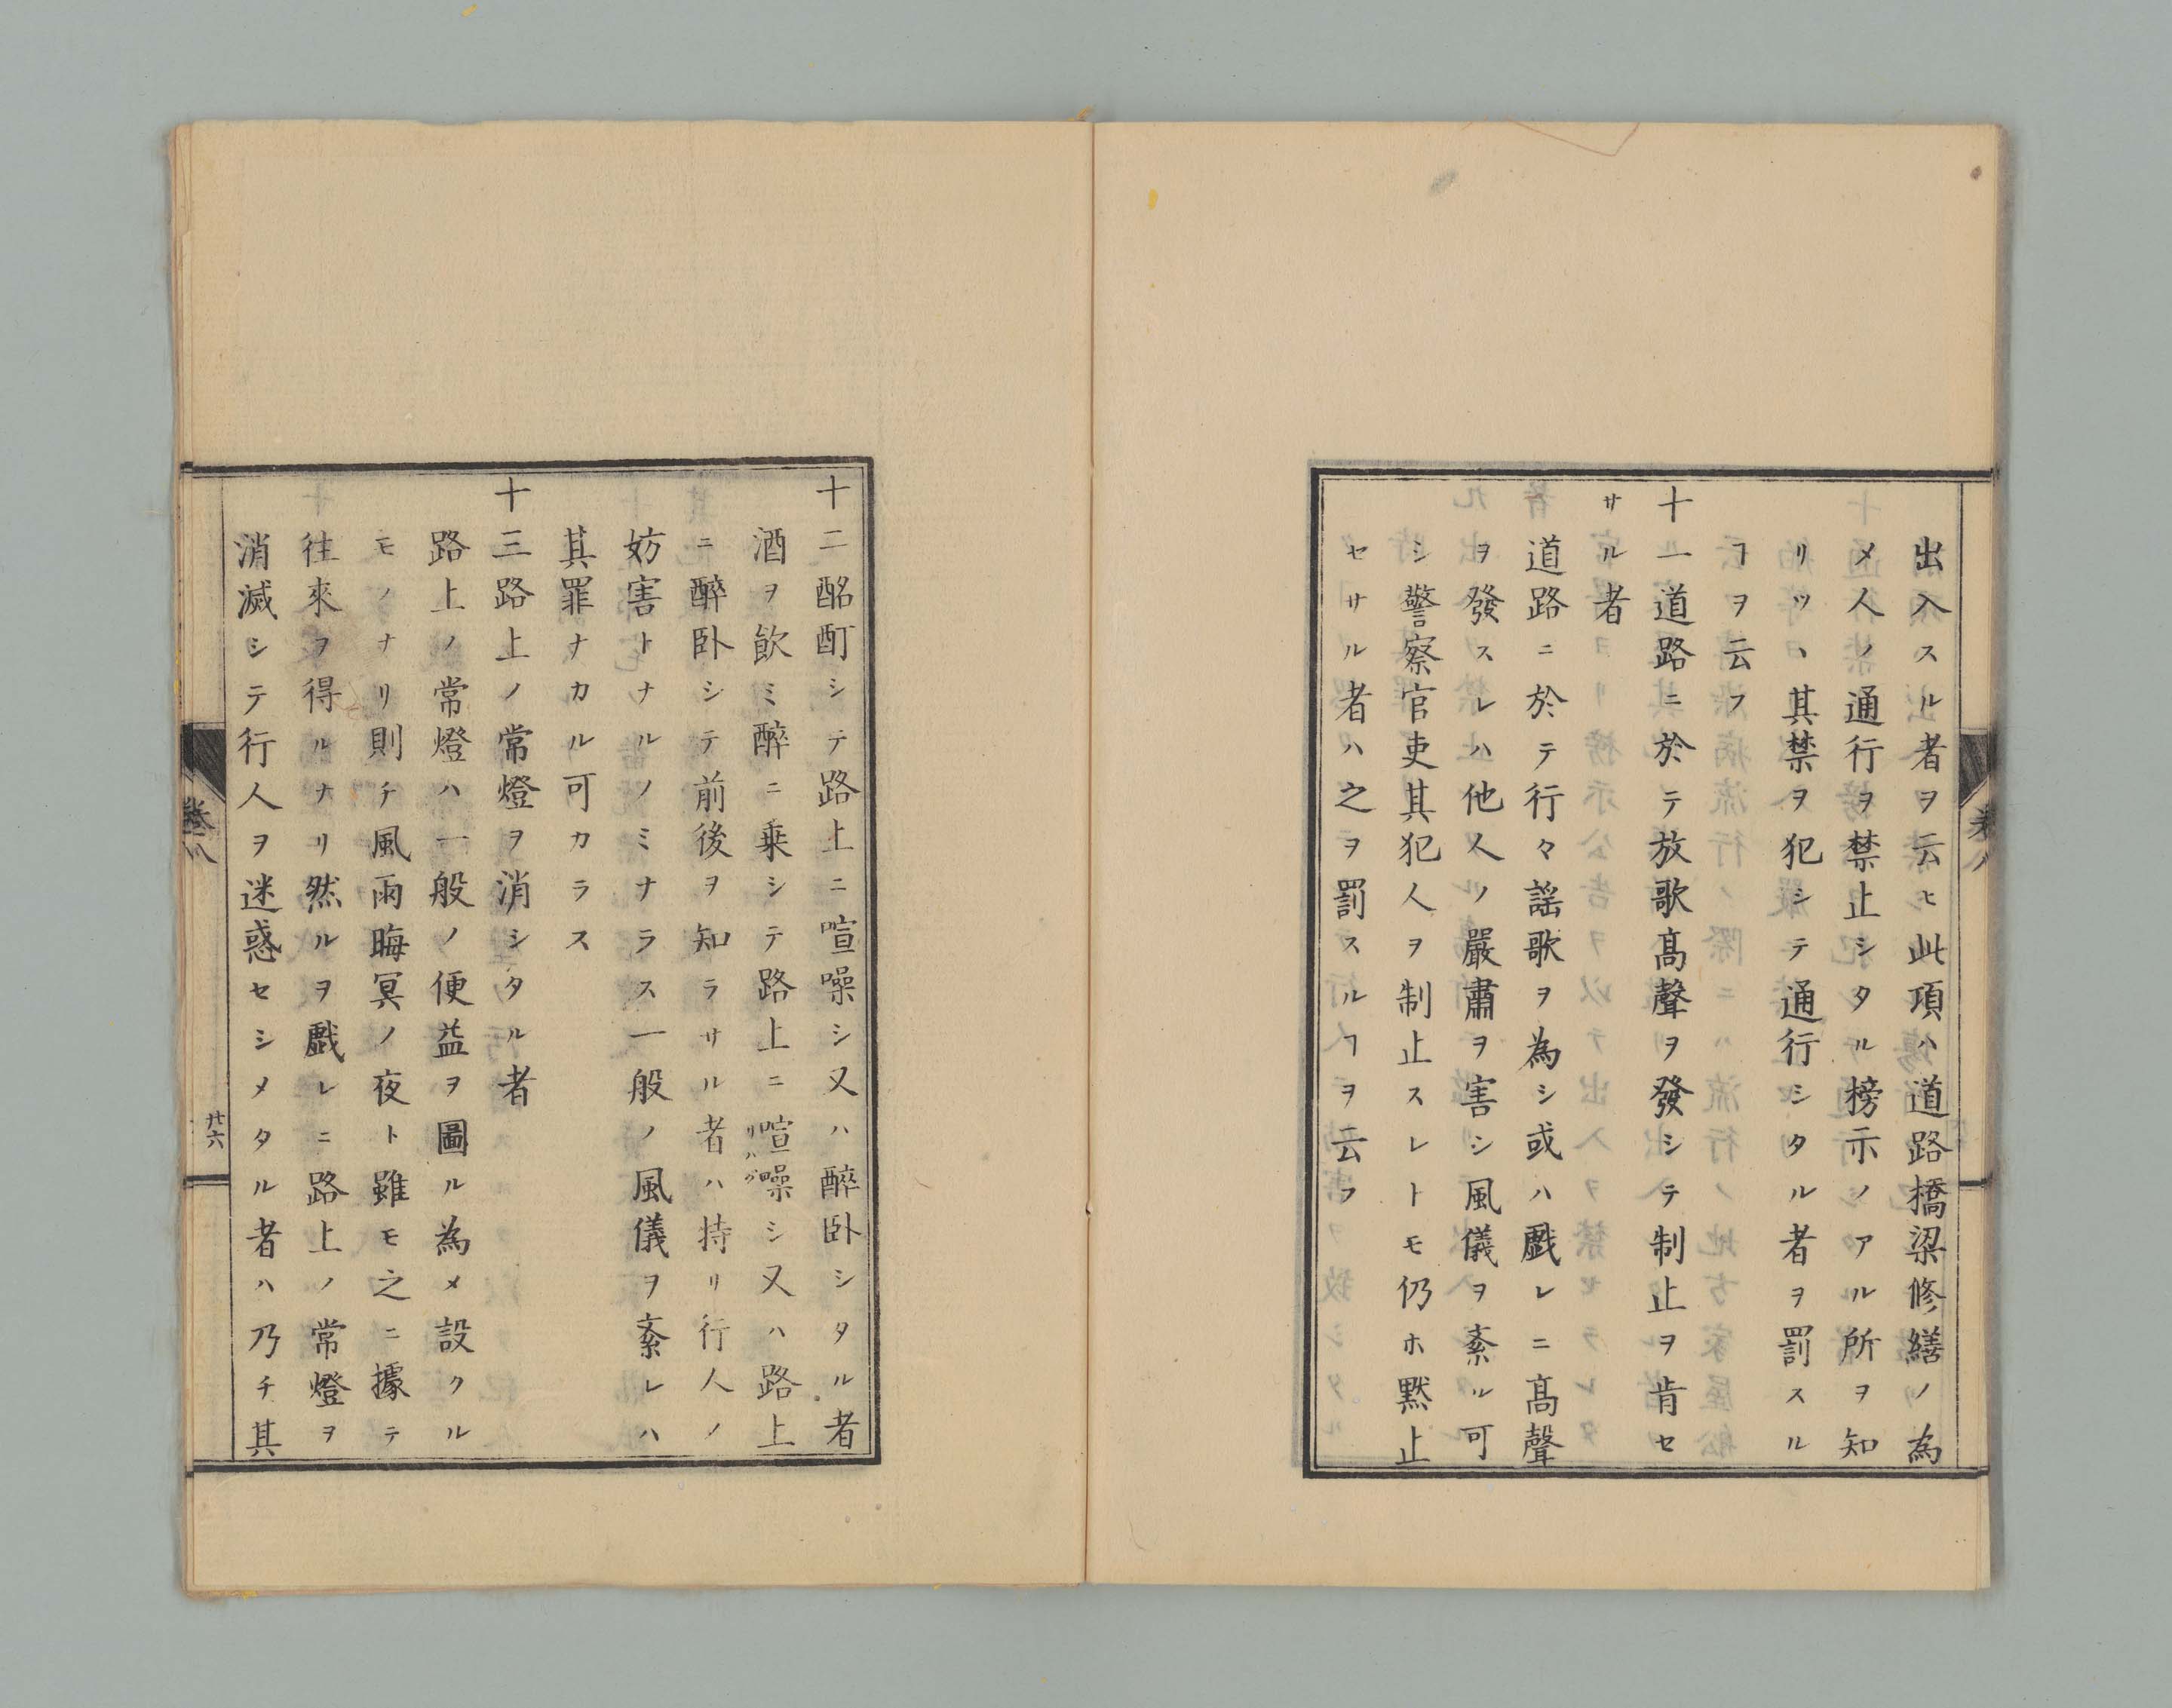 出入スル者ヲ云ヒ此項ハ道路橋梁修繕ノ為
メ人ノ通行ヲ禁止シタル榜示ノアル所ヲ知
リツヽ其禁ヲ犯シテ通行シタル者ヲ罰スル
ヿヲ云フ
十一道路ニ於テ放歌髙聲ヲ發シテ制止ヲ肯セ
サル者
道路ニ於テ行々謡歌ヲ為シ或ハ戲レニ髙聲
ヲ發スレハ他人ノ嚴肅ヲ害シ風儀ヲ紊ル可
シ警察官吏其犯人ヲ制止スレトモ仍ホ黙止
セサル者ハ之ヲ罰スルヿヲ云フ
十二酩酊シテ路上ニ喧噪シ又ハ醉卧シタル者
酒ヲ飲ミ醉ニ乗シテ路上ニ喧噪シ又ハ路上
リハグ
ニ醉卧シテ前後ヲ知ラサル者ハ持リ行人ノ
妨害トナルノミナラス一般ノ風儀ヲ紊レハ
其罪ナカル可カラス
十三路上ノ常燈ヲ消シタル者
路上ノ常燈ハ一般ノ便益ヲ圖ル為メ設クル
モノナリ則チ風雨晦冥ノ夜ト雖モ之ニ據テ
往來ヲ得ルナリ然ルヲ戲レニ路上ノ常燈ヲ
消滅シテ行人ヲ迷惑セシメタル者ハ乃チ其
卷八
廿六